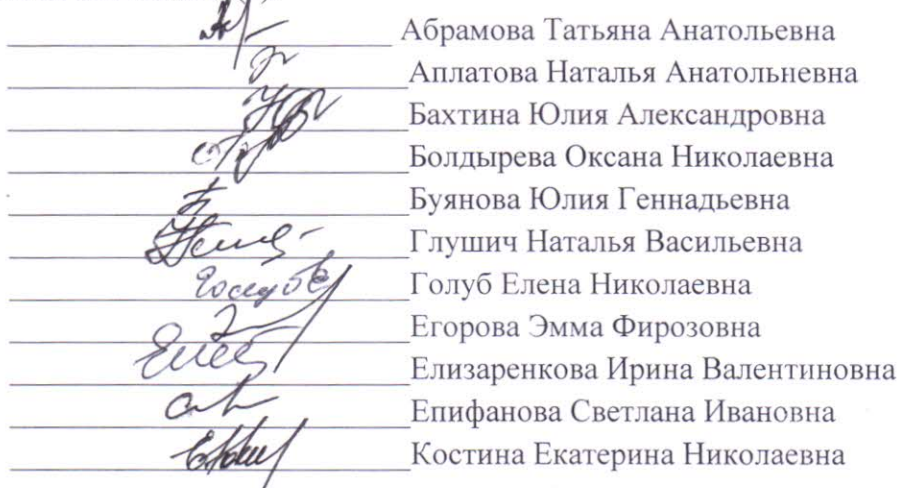 Абрамова Татьяна Анатольевна
Аплатова Наталья Анатольневна
Бахтина Юлия Александровна
Болдырева Оксана Николаевна
Буянова Юлия Геннадьевна
Глушич Наталья Васильевна
Голуб Елена Николаевна
Егорова Эмма Фирозовна
Елизаренкова Ирина Валентиновна
Епифанова Светлана Ивановна
Костина Екатерина Николаевна